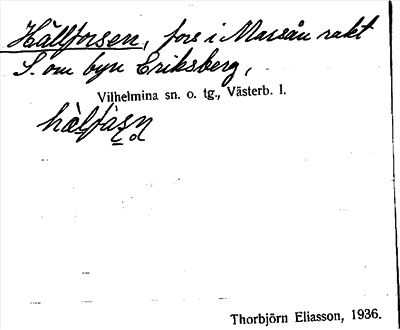 Hällforsen, fors i Marsån rakt
S. om byn Eriksberg,
Vilhelmina sn. o. tg., Västerb. l.
Thorbjörn Eliasson, 1936.